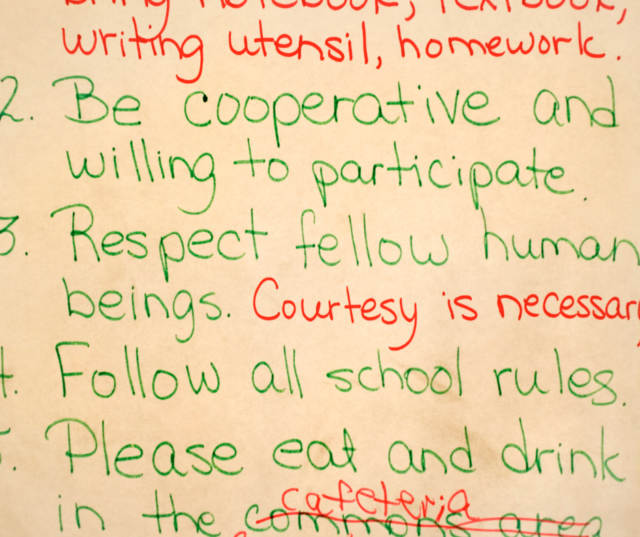 bring notebook, textbook,
writing utensil, homework.
2. Be cooperative and
willing to participate.
3. Respect fellow human
beings. Courtesy is necessary
4. Follow all school rules.
5. Please eat and drink
cafeteria
in the commons area